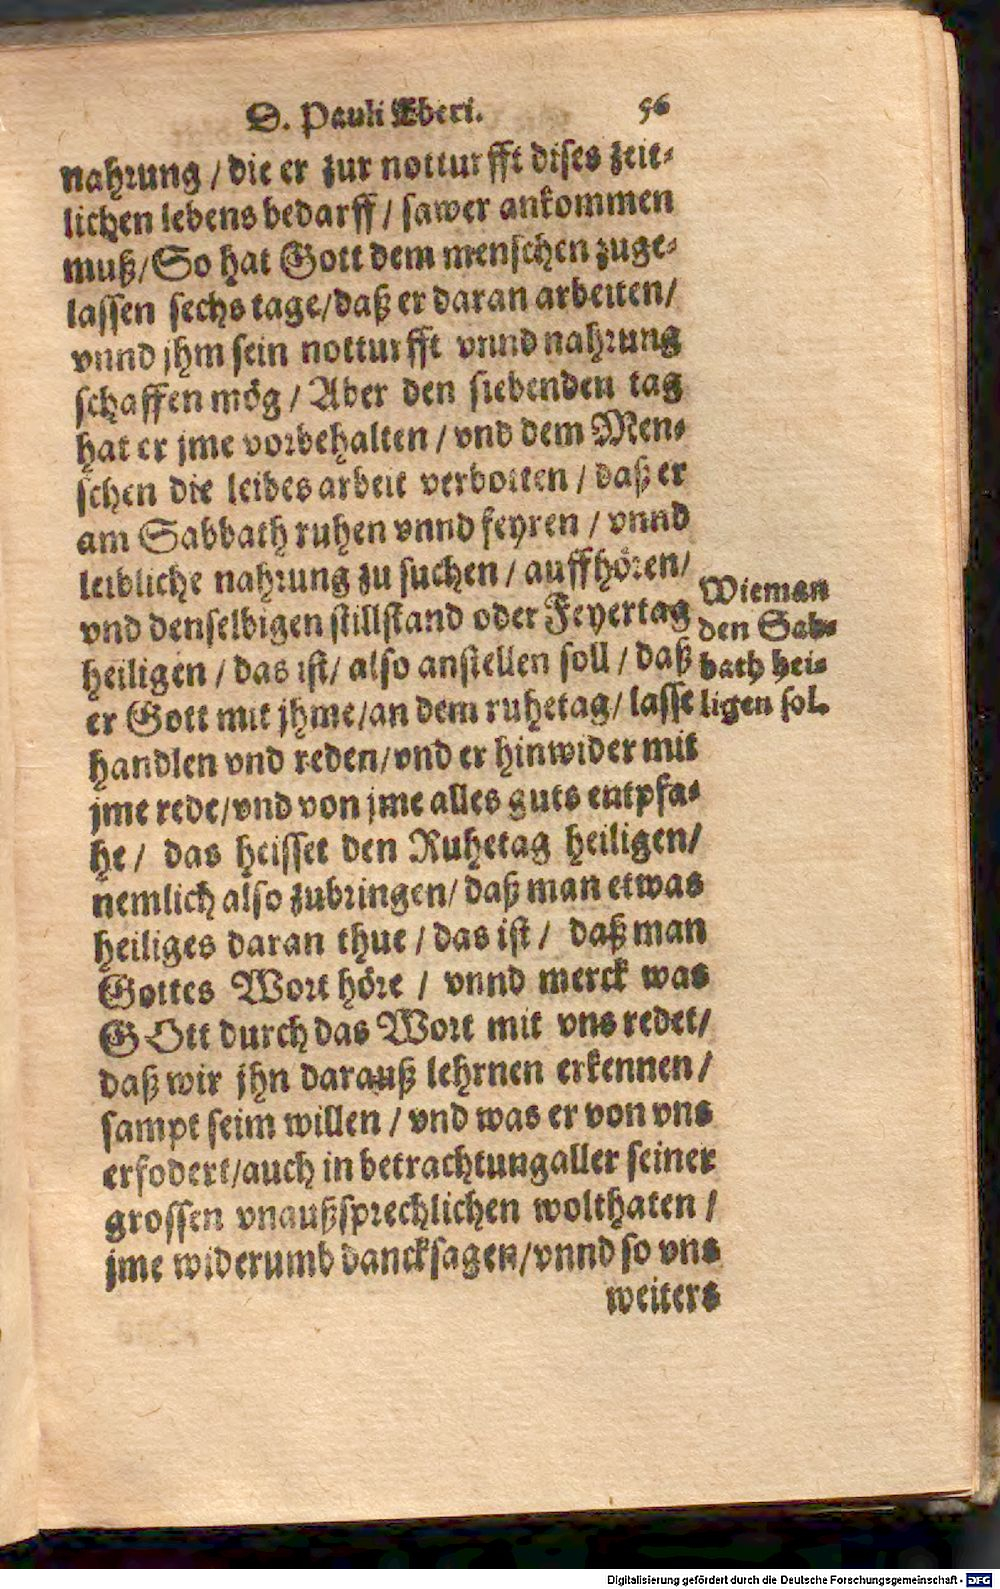 D. Pauli Eberi. 56
nahrung / die er zur notturfft dises zeit-
lichen lebens bedarff / sawer ankommen
muß / So hat Gott dem menschen zuge-
lassen sechs tage / daß er daran arbeiten /
vnnd jhm sein notturfft vnnd nahrung
schaffen mög / Aber den siebenden tag
hat er jme vorbehalten / vnd dem Men-
schen die leibes arbeit verbotten / daß er
am Sabbath ruhen vnnd feyren / vnnd
leibliche nahrung zu suchen / auffhören /
vnd denselbigen stillstand oder Feyertag
heiligen / das ist / also anstellen soll / daß
er Gott mit jhme / an dem ruhetag / lasse
handlen vnd reden / vnd er hinwider mit
jme rede / vnd von jme alles guts entpfa-
he / das heisset den Ruhetag heiligen /
nemlich also zubringen / daß man etwas
heiliges daran thue / das ist / daß man
Gottes Wort höre / vnnd merck was
GOtt durch das Wort mit vns redet /
daß wir jhn darauß lehrnen erkennen /
sampt seim willen / vnd was er von vns
erfodert / auch in betrachtung aller seiner
grossen vnaußsprechlichen wolthaten /
jme widerumb dancksagen / vnnd so vns
weiters
Wie man
den Sab-
bath hei-
ligen sol.
Digitalisierung gefördert durch die Deutsche Forschungsgemeinschaft - DFG